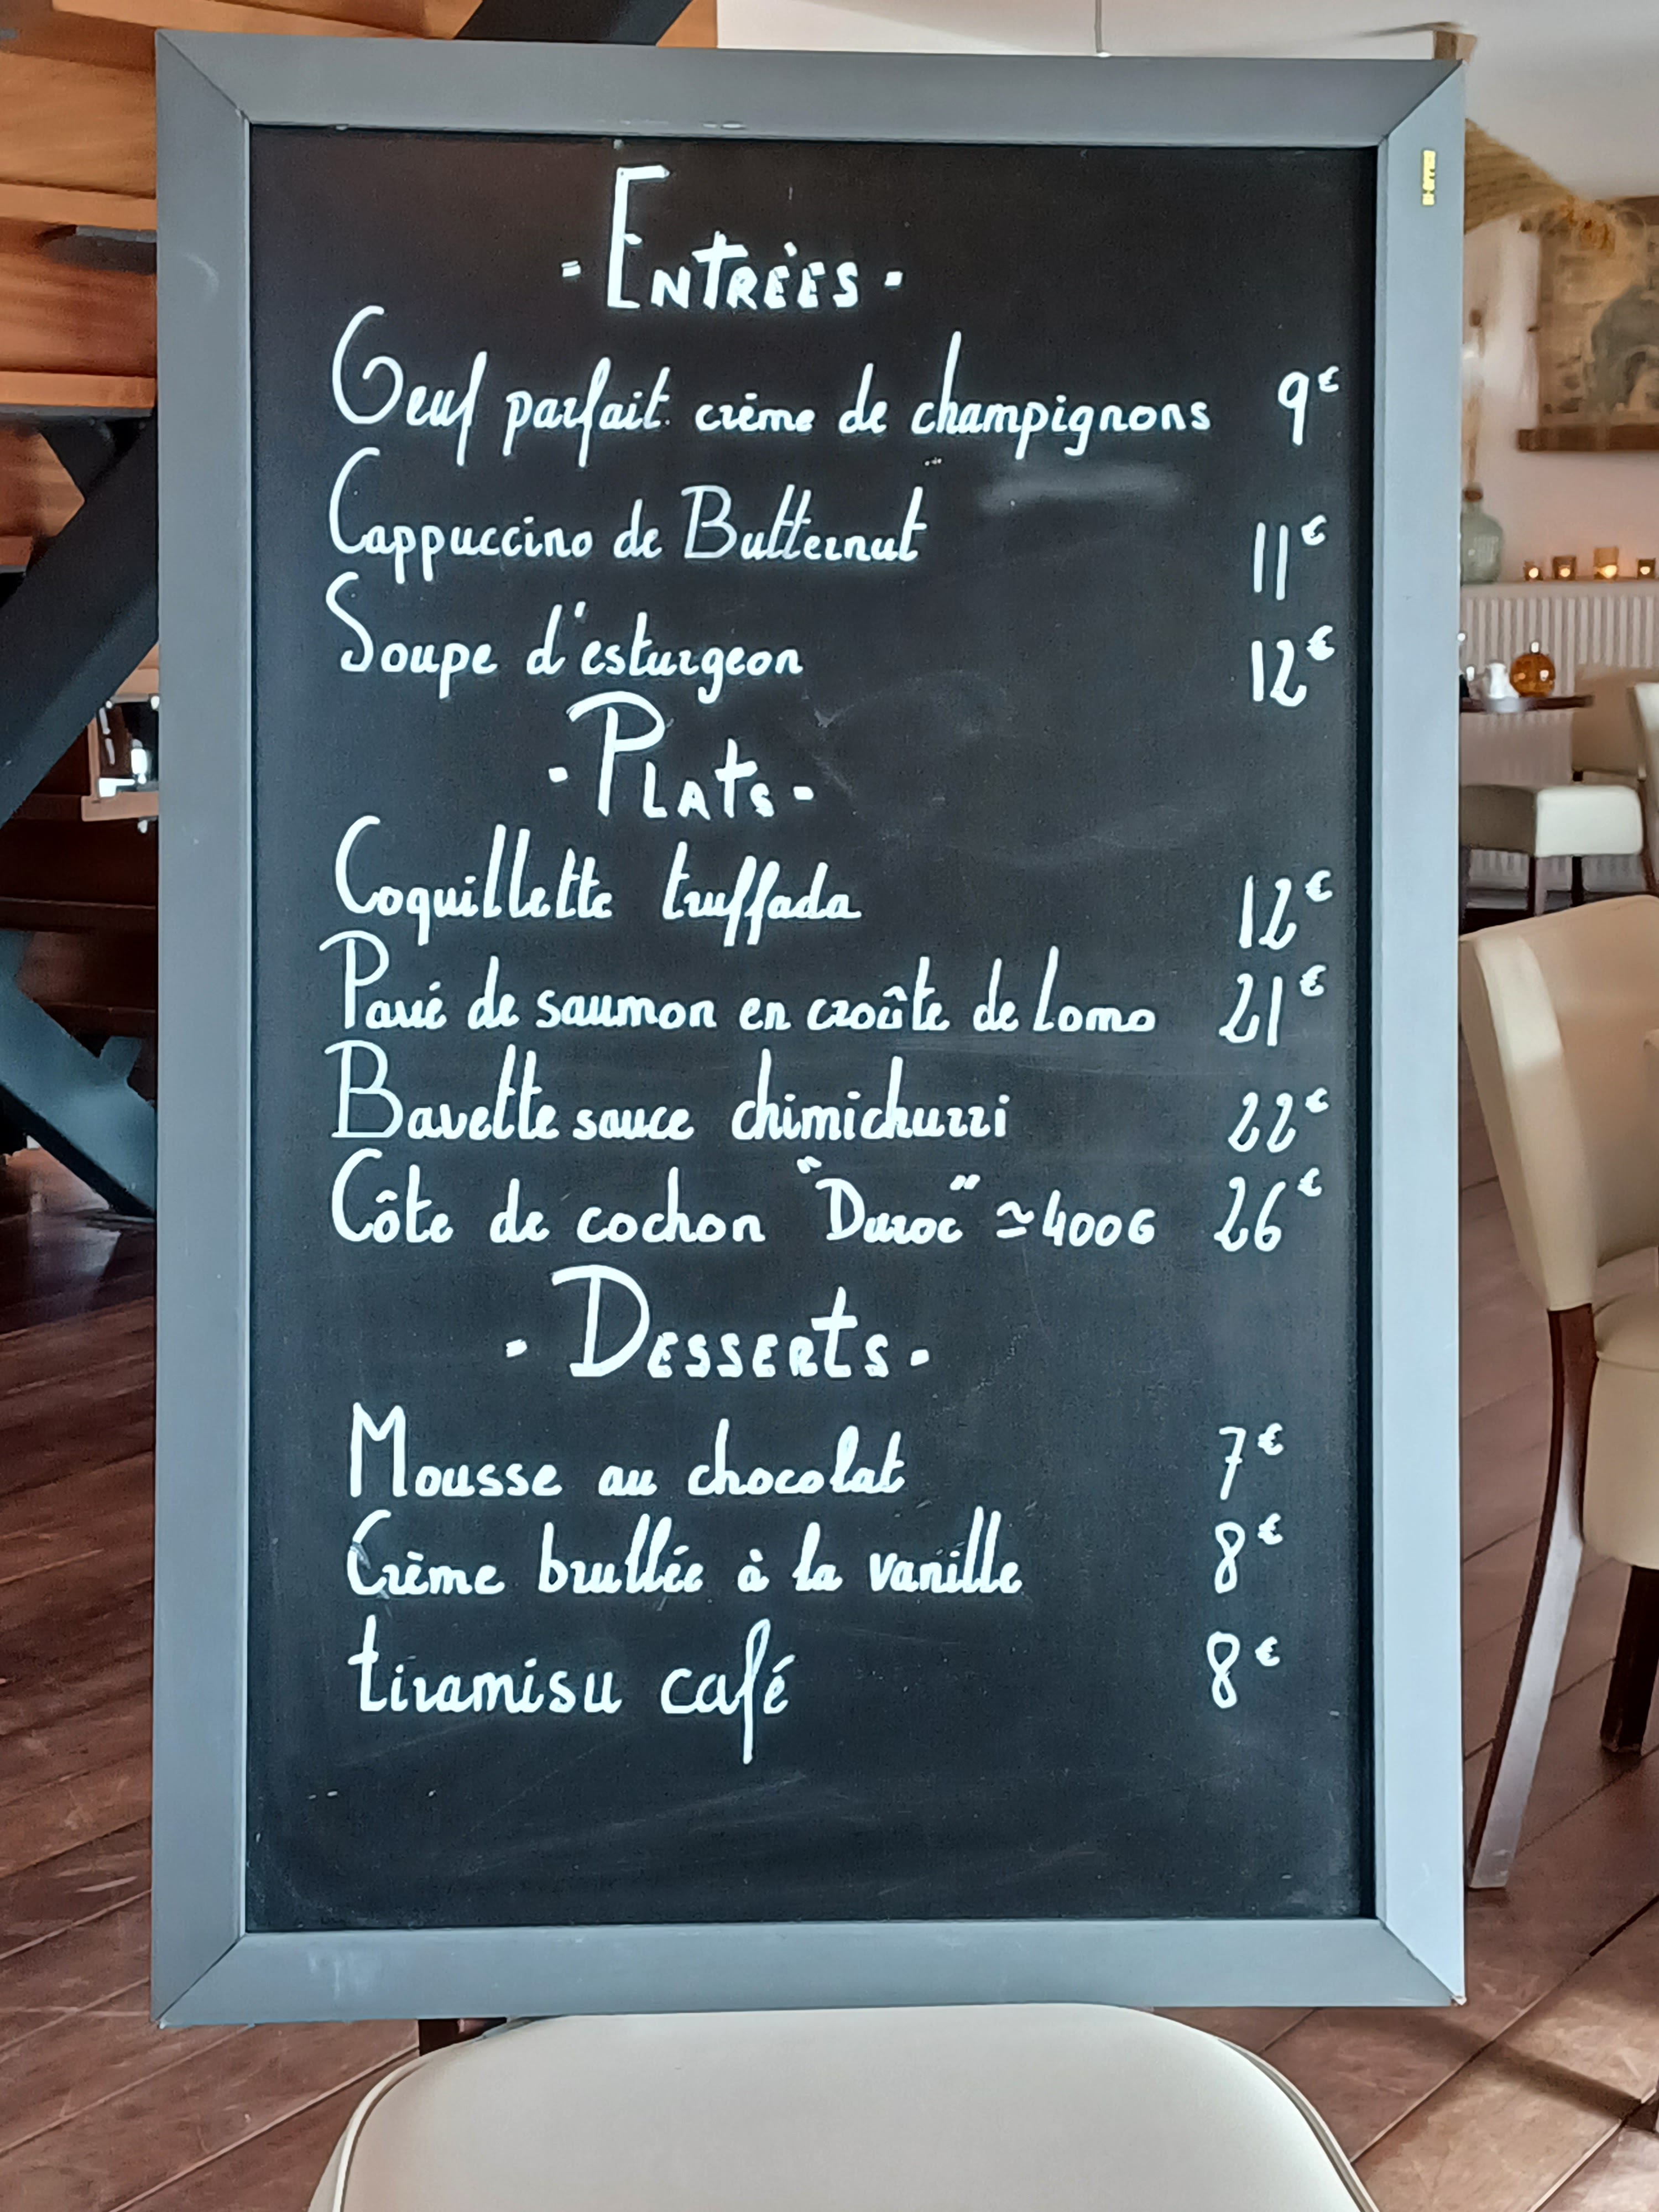 - Entrées -
Oeuf parfait crème de champignons 9€
Cappuccino de Butternut 11€
Soupe d'esturgeon 12€
- Plats -
Coquillette truffada 12€
Pavé de saumon en croûte de Lomo 21€
Bavette sauce chimichurri 22€
Côte de cochon "Duroc" ≃ 400G 26€
- Desserts -
Mousse au chocolat 7€
Crème brullée à la vanille 8€
tiramisu café 8€